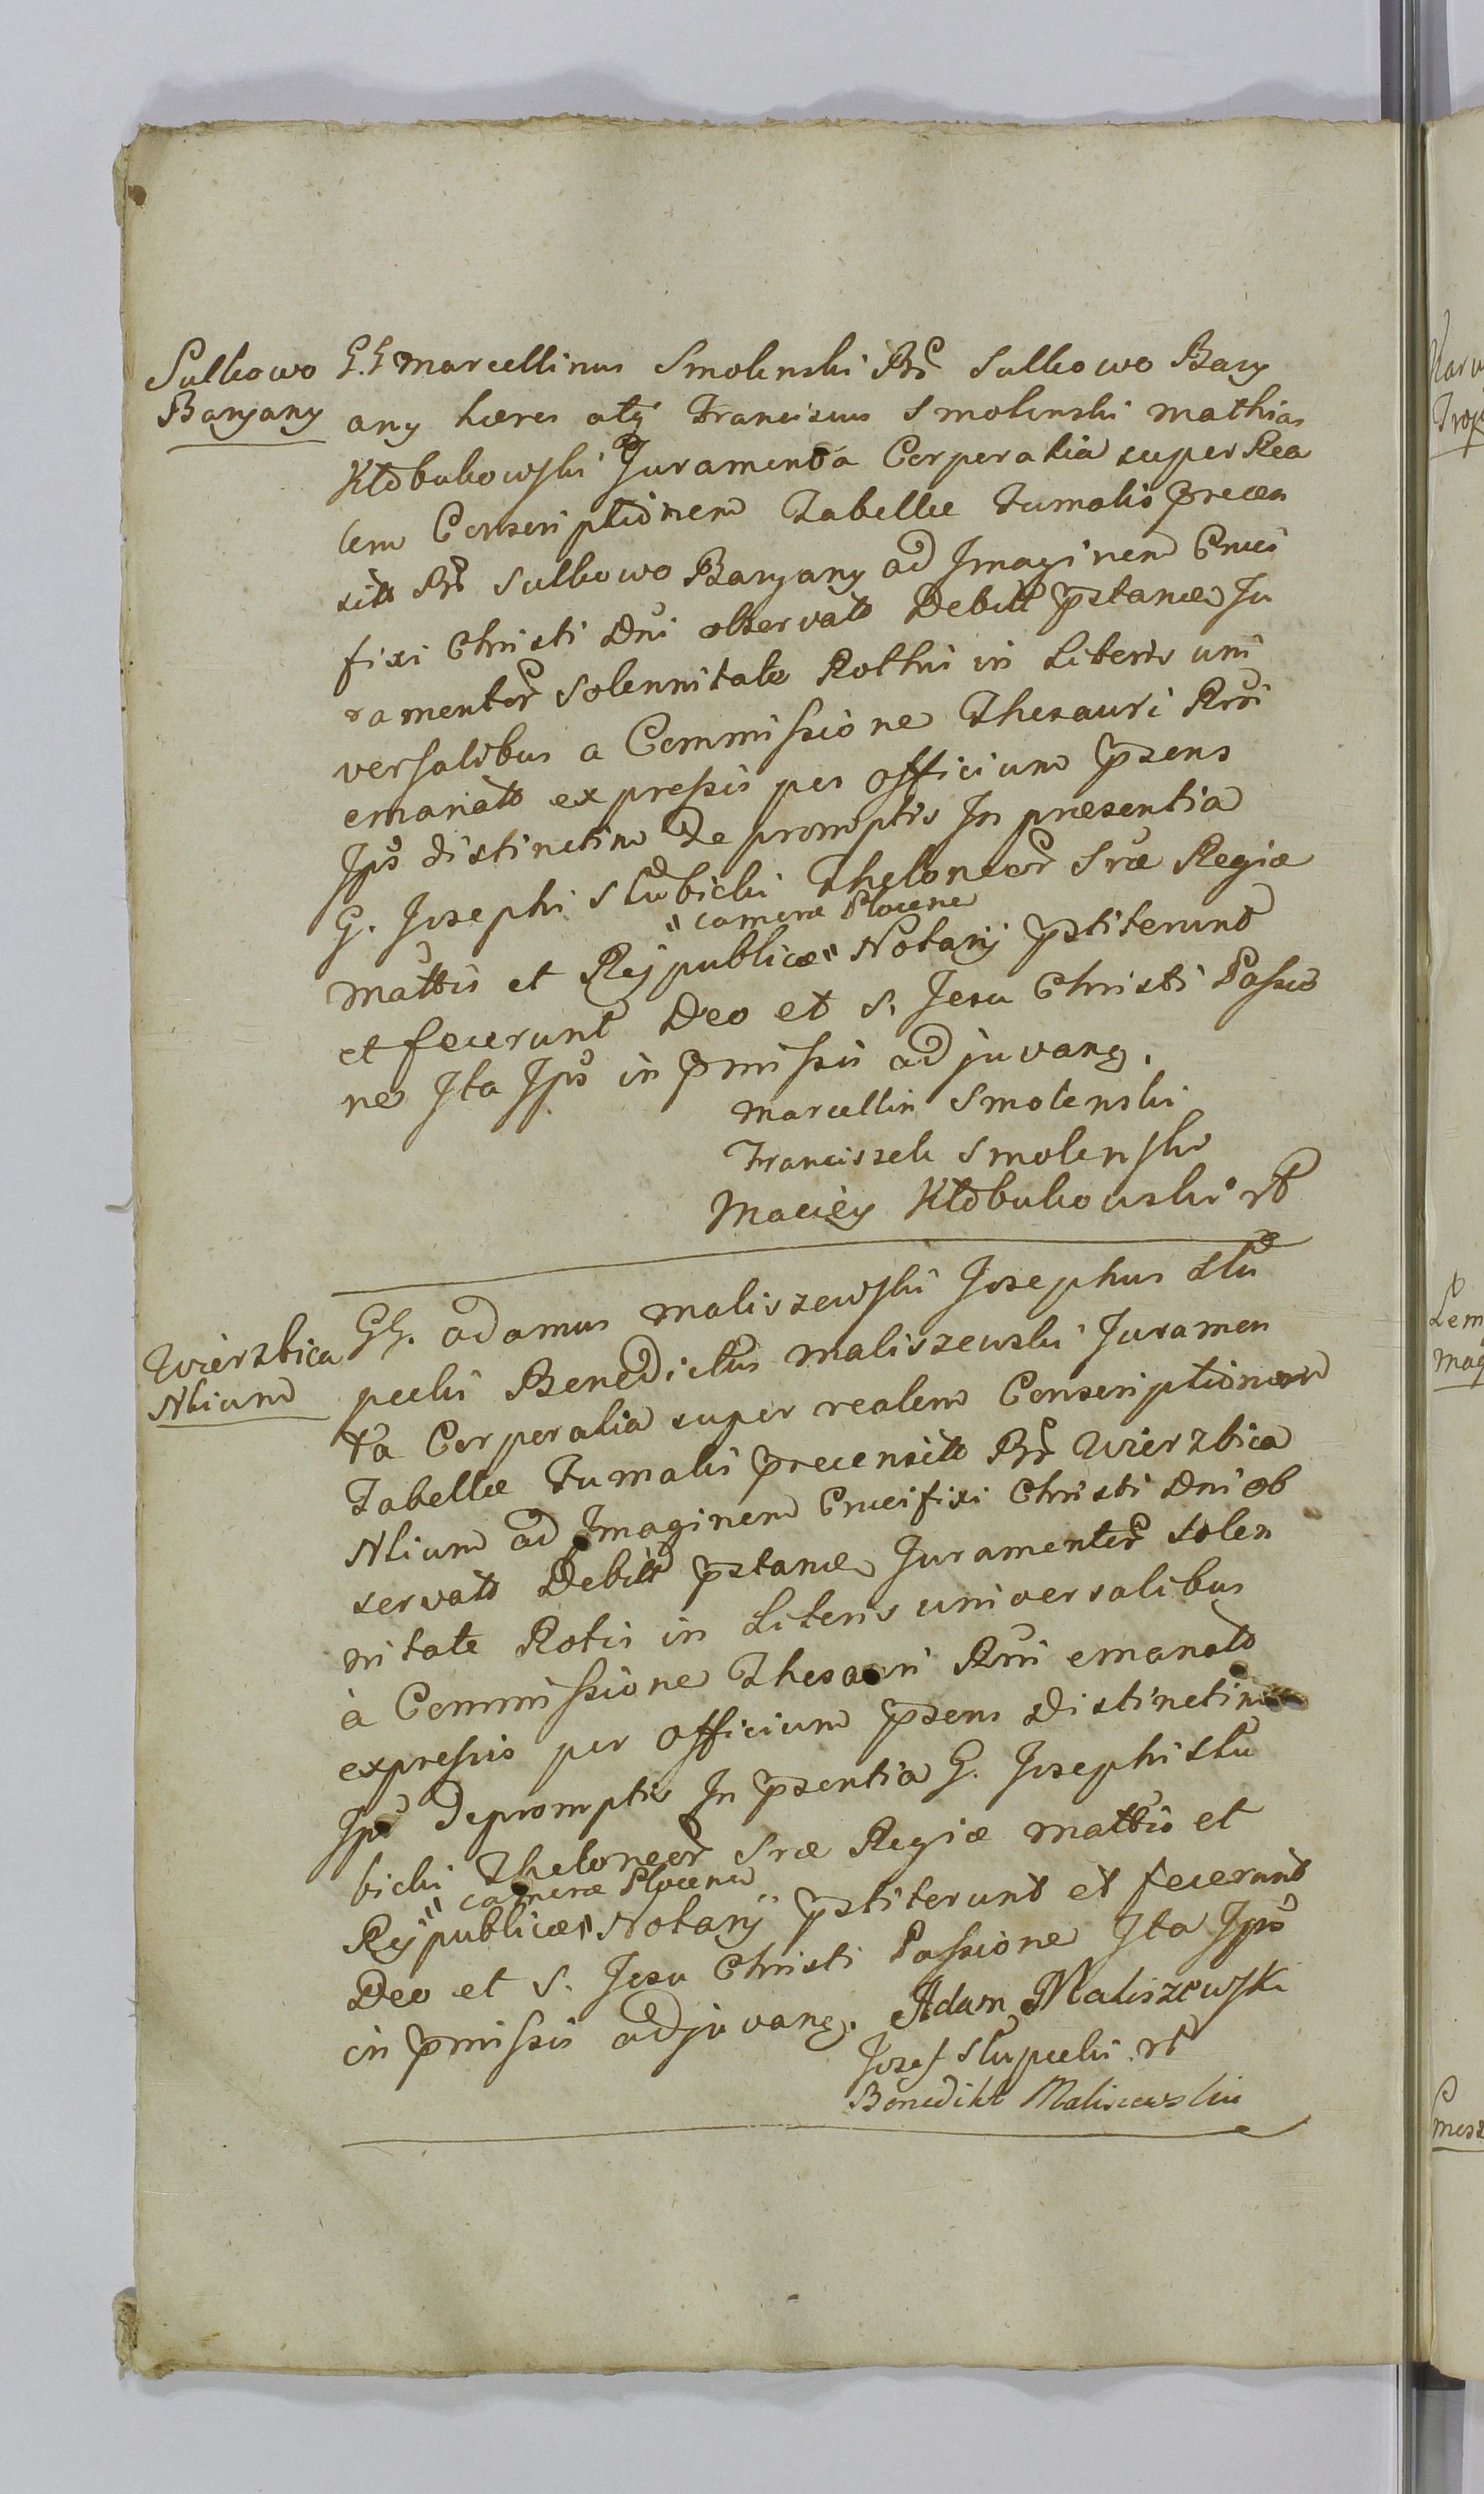 Sulkowo
Baryany
G.G Marcellinus Smolenski Bր̃ Sulkowo Bary
any hæres atq̃ Franciscus Smolenski Mathias
Kłobukowski Juramenta Corporalia super Rea
lem Conscriptionem Tabellæ Fumalis precen
sitt Bր̃ Sulkowo Baryany ad Imaginem Cruci
fixi Christi Dni observato Debitt p̃standi Ju
ramenter̃ Solennitate Rothis in Literis uni
versalibus a Commissione Thesauri Rni
emanatt expressis per Officium p̃sens
Ips distinctim de promptis In præsentia
G. Josephi Słubicki Theloneor̃ Sræ Regiæ
"cameræ Plocen
Mattis et Reypublicæ" Notarÿ p̃stiterunt
et fecerunt Deo et S. Jesu Christi Passio
ne Ita Ips in p̃missis adjuvang.
Marcellin Smolenski
Franciszek Smolenski
Maciey Kłobukowski
Wierzbica
Alium
GG. Adamus Maliszewski Josephus Słu
pecki Benedictus Maliszewski Juramen
ta Corporalia super realem Conscriptionem
Tabellæ Fumalis p̃recensitt Bր̃ Wierzbica
Alium ad Imaginem Crucifixi Christi Dni ob
servato Debitt p̃standi Juramenter̃ Solen
nitate Rotis in Literis universalibus
à Commissione Thesauri Rni emanatt
expressis per Officium p̃sens Distinctim
Ips depromptis In p̃sentia G. Josephi Słu
bicki Theloneor̃ Sræ Regiæ Mattis et
"cameræ Plocen
Reypublicæ" Notarÿ p̃stiterunt et fecerunt
Deo et S. Jesu Christi Passione Ita Ips
in p̃missis adjuvang. Adam Maliszewski
Josef Słupecki
Benedikt Maliszewski